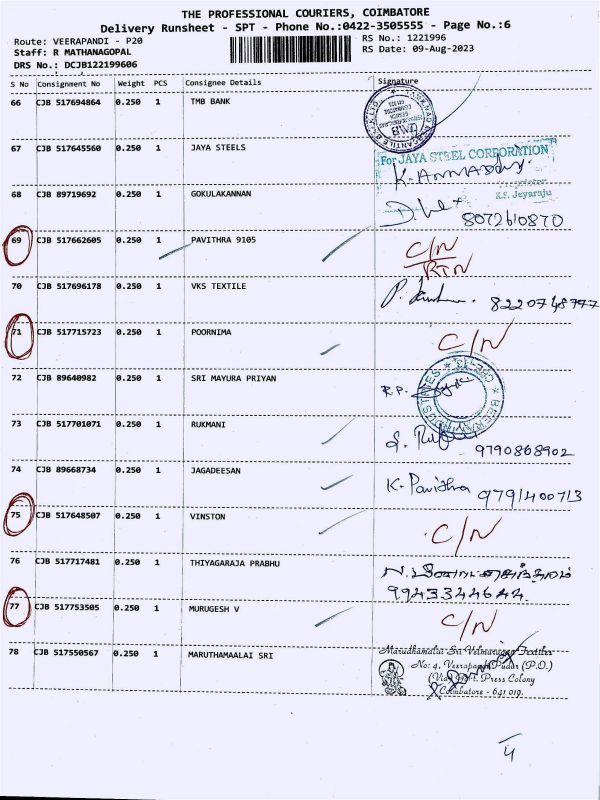 THE PROFESSIONAL COURIERS, COIMBATORE
Delivery Runsheet - SPT - Phone No.:0422-3505555 - Page No.:6
Route: VEERAPANDI - P20
RS No.: 1221996
Staff: R MATHANAGOPAL
RS Date: 09-Aug-2023
DRS No.: DCJB122199606
S No Consignment No Weight PCS Consignee Details Signature
66 CJB 517694864 0.250 1 TMB BANK
67 CJB 517645560 0.250 1 JAYA STEELS
For JAYA STEEL CORPORATION
K.S. Jeyaraju
68 CJB 89719692 0.250 1 GOKULAKANNAN
8072610870
69 CJB 517662605 0.250 1 PAVITHRA 9105 C/N
RTN
70 CJB 517696178 0.250 1 VKS TEXTILE
71 CJB 517715723 0.250 1 POORNIMA C/N
72 CJB 89640982 0.250 1 SRI MAYURA PRIYAN R.P.
73 CJB 517701071 0.250 1 RUKMANI
9790868902
74 CJB 89668734 0.250 1 JAGADEESAN K. Pavithra 9791400713
75 CJB 517648507 0.250 1 VINSTON C/N
76 CJB 517717481 0.250 1 THIYAGARAJA PRABHU
9943344644
77 CJB 517753505 0.250 1 MURUGESH V C/N
78 CJB 517550567 0.250 1 MARUTHAMAALAI SRI
Marudhamalai Sri Velmurugan Textiles
No: 4, Veerapandi Pudur (P.O.)
Press Colony
Coimbatore - 641 019.
4